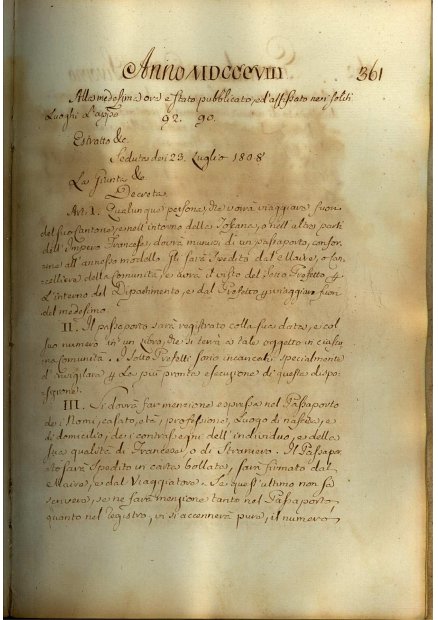 Anno MDCCCVIII 361
Alla medesima ora è stato pubblicato, ed affissato nei soliti
Luoghi L'appō 92. 90.
Estratto &c.
Seduta dei 23. Luglio 1808
La Giunta &c.
Decreta
Art. I. Qualunque persona, che vorrà viaggiare fuori
del suo Cantone, e nell'interno della Toscana, o nell'altre parti
dell'Impero Francese, dovrà munirsi di un passaporto, confor-
me all'annesso modello. Gli sarà spedito dal Maire, o can-
celliere della comunità, e avrà il visto del Sotto Prefetto, p
L'interno del Dipartimento, e dal Prefetto p viaggiare fuori
del medesimo
II. Il passaporto sarà registrato colla sua data, e col
suo numero in un libro, che si terrà a tale oggetto in ciascu-
na comunità. I Sotto Prefetti sono incaricati specialmente
d'invigilare p la più pronta esecuzione di queste dispo-
sizione.
III. Si dovrà far menzione espressa nel Passaporto
dei Nomi, casato, età, professione, Luogo di nascita, e
di domicilio, dei contrassegni dell'individuo, e della
sua qualità di Francese, o di Straniero. Il Passapor-
to sarà spedito in carta bollata, sarà firmato dal
Maire, e dal Viaggiatore. Se quest'ultimo non sà
scrivere, se ne farà menzione tanto nel Passaporto
quanto nel registro, vi si accennerà pure, il numero